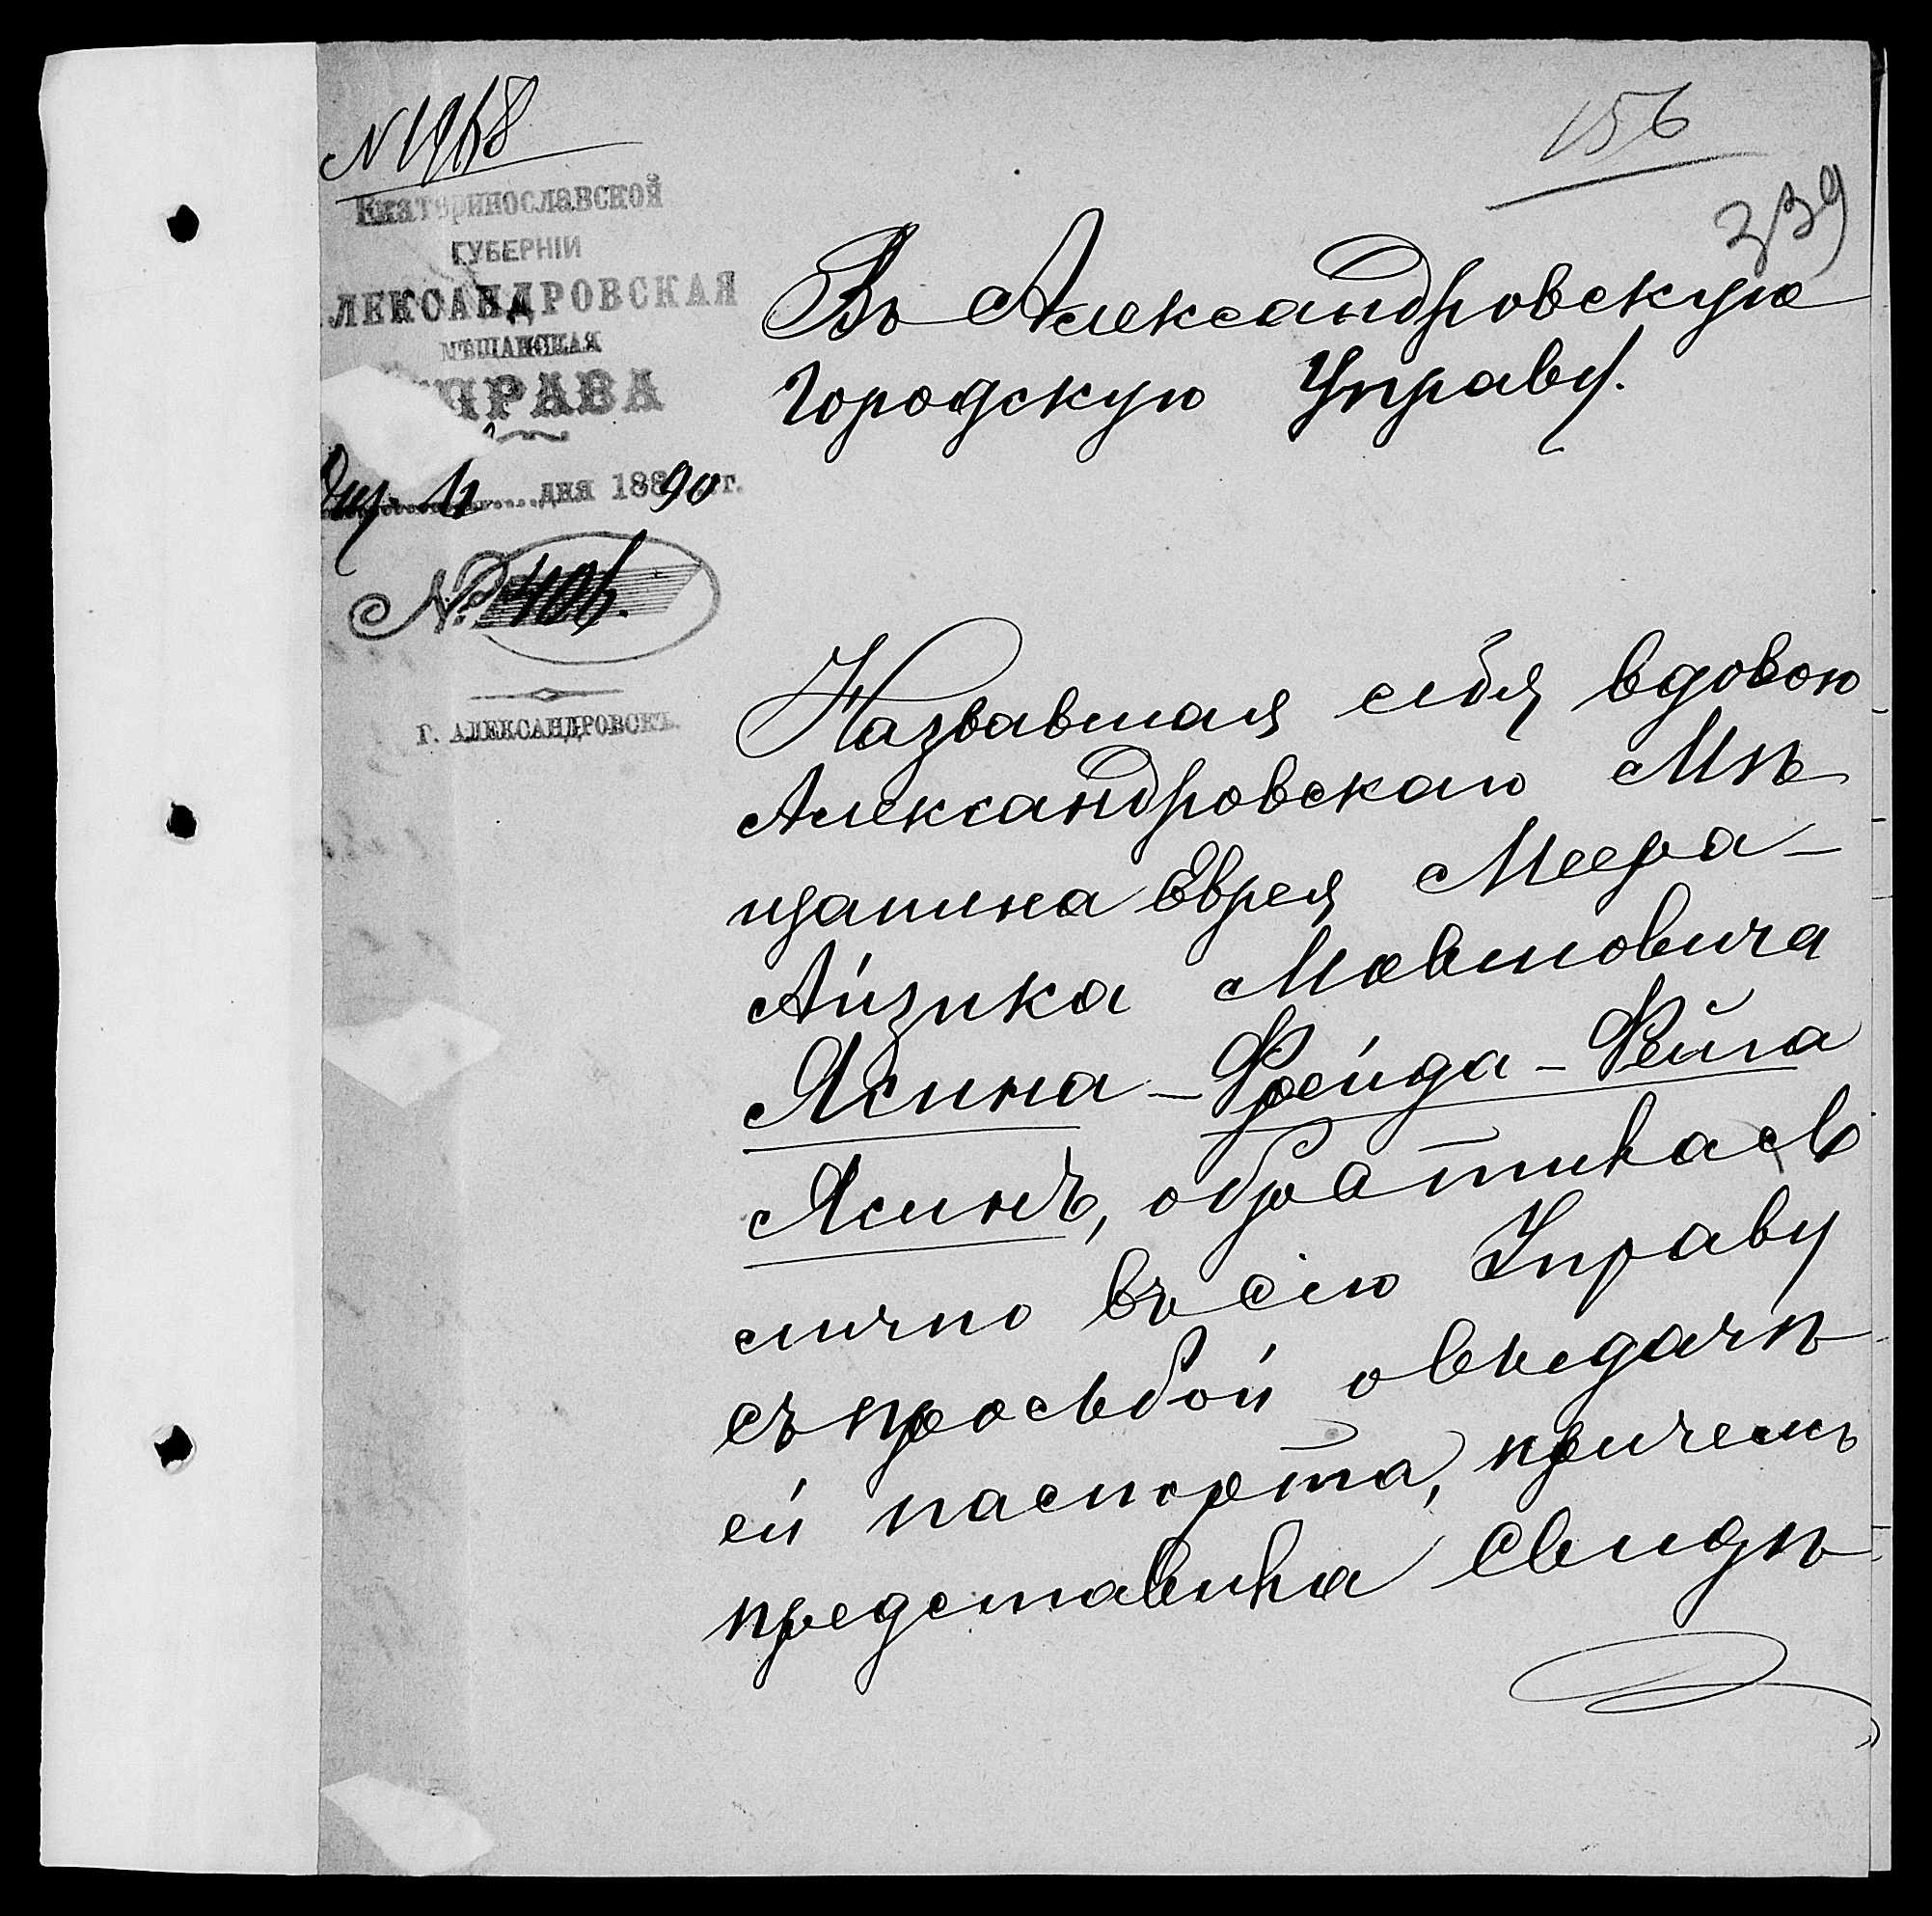 N 1968
156
339
Екатеринославской
ГУБЕРНІИ
АЛЕКСАНДРОВСКАЯ
МѢЩАНСКАЯ
УПРАВА
дня 188 90 г.
№
Г. АЛЕКСАНДРОВСКЪ.
Въ Александровскую
Городскую Управу.
Назвавшая себя вдовою
Александровскаго Мѣ
щанина Еврея Меера-
Айзика Мовшовича
Ясина - Фрейда - Фейга
Ясинъ, обратилась
лично въ сію Управу
съ просьбой о выдачѣ
ей паспорта, причемъ
представила свидѣ